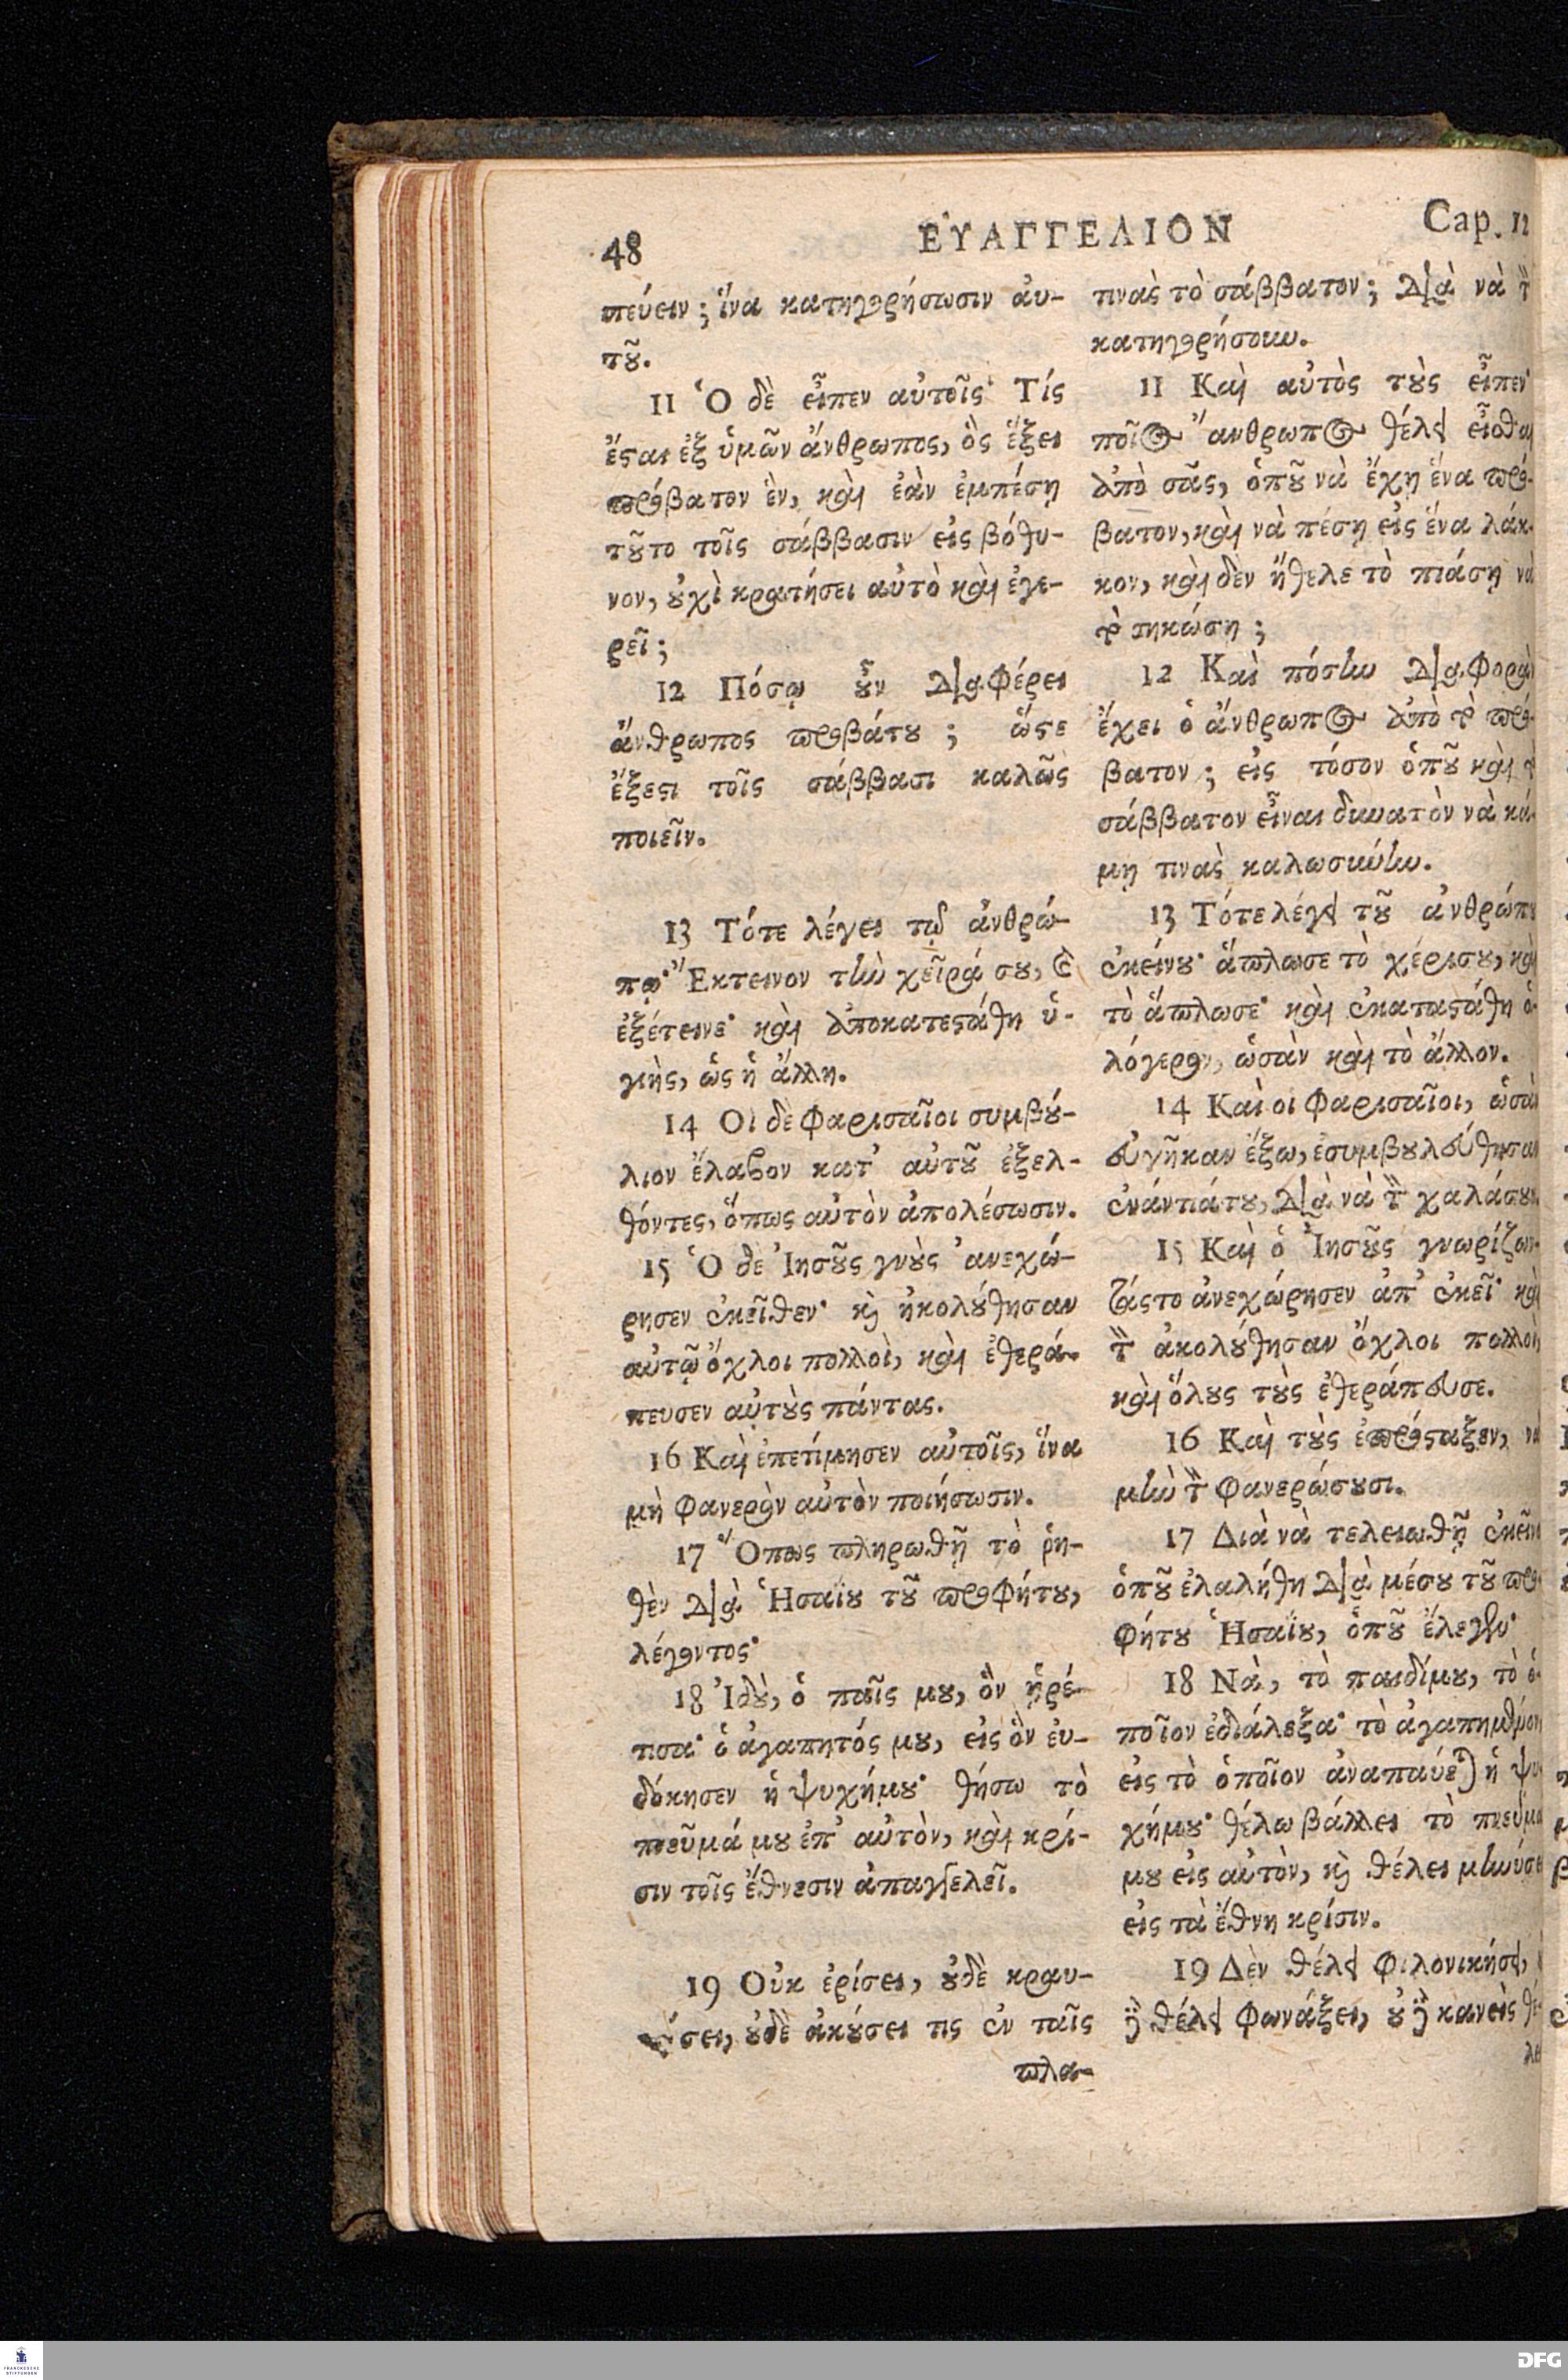 48
ΕΥ̓ΑΓΓΕΛΙΟΝ
Cap. 12
πεύειν; ἵνα κατηγορήσωσιν ἀυ-
τȣ͂.
11 Ὁ δὲ εἶπεν αὐτοῖς· Τίς
ἔϛαι ἐξ ὑμῶν ἄνθρωπος, ὃς ἕξει
πρόβατον ἓν, καὶ ἐὰν ἐμπέσῃ
τȣ͂το τοῖς σάββασιν εἰς βόθυ-
νον, ȣ̓χὶ κρατήσει αὐτὸ καὶ ἐγε-
ρεῖ;
12 Πόσῳ ȣ̓͂ν διαφέρει
ἄνθρωπος προβάτȣ; ὥϛε
ἔξεϛι τοῖς σάββασι καλῶς
ποιεῖν.
13 Τότε λέγει τῷ ἀνθρώ-
πῳ· Ἔκτεινον τὴν χεῖρά σȣ, καὶ
ἐξέτεινε· καὶ ἀποκατεϛάθη ὑ-
γιὴς, ὡς ἡ ἄλλη.
14 Οἱ δὲ Φαρισαῖοι συμβȣ́-
λιον ἔλαβον κατ' αὐτȣ͂ ἐξελ-
θόντες, ὅπως αὐτὸν ἀπολέσωσιν.
15 Ὁ δὲ Ἰησȣ͂ς γνȣ̀ς ἀνεχώ-
ρησεν ἐκεῖθεν· κὶ ἠκολȣ́θησαν
αὐτῷ ὄχλοι πολλοὶ, καὶ ἐθερά-
πευσεν αὐτȣ̀ς πάντας.
16 Καὶ ἐπετίμησεν αὐτοῖς, ἵνα
μὴ φανερὸν αὐτὸν ποιήσωσιν.
17 Ὅπως πληρωθῇ τὸ ῥη-
θὲν διὰ Ἡσαΐȣ τȣ͂ προφήτȣ,
λέγοντος·
18 Ἰδȣ̀, ὁ παῖς μȣ, ὃν ᾑρέ-
τισα· ὁ ἀγαπητός μȣ, εἰς ὃν ἐυ-
δόκησεν ἡ ψυχήμȣ· θήσω τὸ
πνεῦμά μȣ ἐπ' αὐτὸν, καὶ κρί-
σιν τοῖς ἔθνεσιν ἀπαγγελεῖ.
19 Οὐκ ἐρίσει, ȣ̓δὲ κραυ-
ȣ̓δὲ ἀκȣ́σει τις ἐν ταῖς
πλα-
τινὰς τὸ σάββατον; διὰ νὰ τὸν
κατηγορήσουν.
11 Καὶ αὐτὸς τȣ̀ς εἶπεν·
ποῖος ἄνθρωπος θέλει εἶσθαι
ἀπὸ σᾶς, ὁπȣ͂ νὰ ἔχῃ ἕνα πρό-
βατον, καὶ νὰ πέσῃ εἰς ἕνα λάκ-
κον, καὶ δὲν ἤθελε τὸ πιάσῃ νὰ
τὸ σηκώσῃ;
12 Καὶ πόσην διαφορὰν
ἔχει ὁ ἄνθρωπος ἀπὸ τὸ πρό-
βατον; εἰς τόσον ὁπȣ͂ καὶ τὸ
σάββατον εἶναι δυνατὸν νὰ κά-
μῃ τινὰς καλωσύνην.
13 Τότε λέγει τȣ͂ ἀνθρώπȣ
ἐκείνȣ· ἅπλωσε τὸ χέρισȣ, καὶ
τὸ ἅπλωσε· καὶ ἐκαταϛάθη ὁ-
λόγερον, ὡσὰν καὶ τὸ ἄλλον.
14 Καὶ οι Φαρισαῖοι, ὡσὰν
εὐγῆκαν ἔξω, ἐσυμβȣλεύθησαν
ἐνάντιάτȣ, διὰ νὰ τὸν χαλάσȣν
15 Καὶ ὁ Ἰησȣ͂ς γνωρίζων-
τάςτο ἀνεχώρησεν ἀπ' ἐκεῖ· καὶ
τὸν ἀκολȣ́θησαν ὄχλοι πολλοὶ,
καὶ ὅλȣς τȣ̀ς ἐθεράπευσε.
16 Καὶ τȣ̀ς ἐπρόϛαξεν, νὰ
μὴν τὸν φανερώσȣσι.
17 Διὰ νὰ τελειωθῇ ἐκεῖνο
ὁπȣ͂ ἐλαλήθη διὰ μέσȣ τȣ͂ προ-
φήτȣ Ἡσαΐȣ, ὁπȣ͂ ἔλεγεν·
18 Νὰ, τὸ παιδίμȣ, τὸ ὁ-
ποῖον ἐδιάλεξα· τὸ ἀγαπημένον
εἰς τὸ ὁποῖον ἀναπαύεται ἡ ψυ-
χήμȣ· θέλω βάλλει τὸ πνεῦμα
μȣ εἰς αὐτὸν, κὶ θέλει μηνύσει
εἰς τὰ ἔθνη κρίσιν.
19 Δὲν θέλει φιλονικήσει,
ȣ̓δὲ θέλει φωνάξει, ȣ̓δὲ κανεὶς θέ-
λει
DFG
FRANCKESCHE
STIFTUNGEN